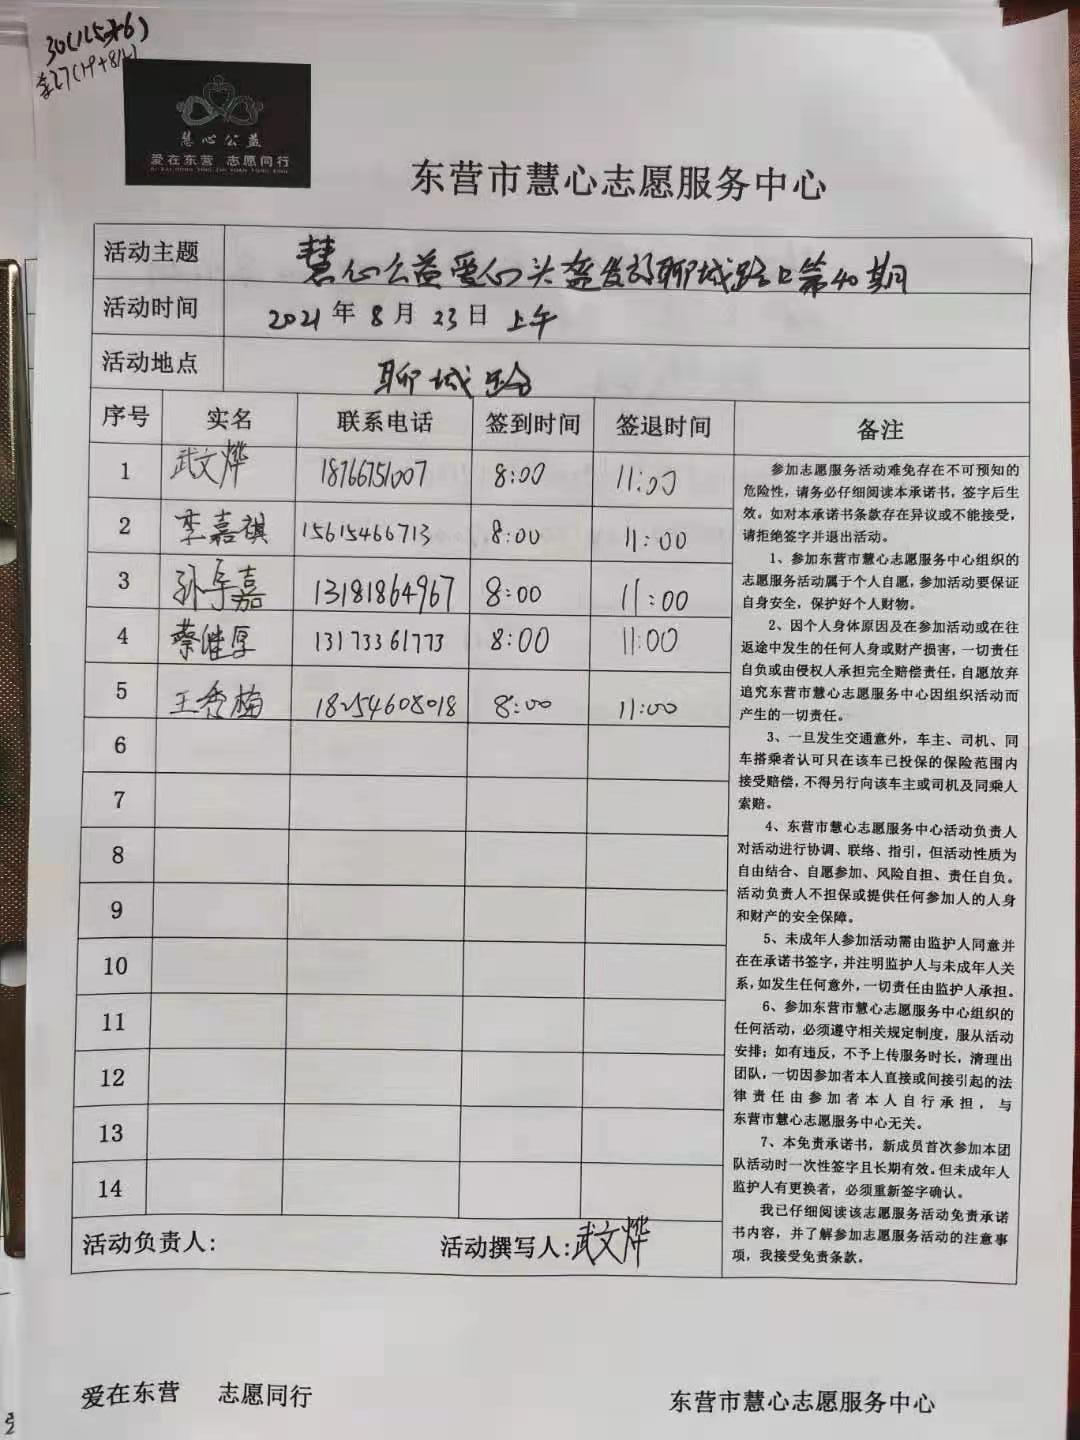 30(1.5米6)
慧心公益
爱在东营 志愿同行
东营市慧心志愿服务中心
活动主题 慧心公益爱心头盔发放聊城路口第40期
活动时间 2021年8月23日上午
活动地点 聊城路
序号 实名 联系电话 签到时间 签退时间 备注
1 武文烨 18766751007 8:00 11:00
2 李嘉祺 15615466713 8:00 11:00
3 孙宇嘉 13181864967 8:00 11:00
4 蔡继厚 13173361773 8:00 11:00
5 王秀梅 18254608018 8:00 11:00
6
7
8
9
10
11
12
13
14
参加志愿服务活动难免存在不可预知的
危险性，请务必仔细阅读本承诺书，签字后生
效。如对本承诺书条款存在异议或不能接受，
请拒绝签字并退出活动。
1、参加东营市慧心志愿服务中心组织的
志愿服务活动属于个人自愿，参加活动要保证
自身安全，保护好个人财物。
2、因个人身体原因及在参加活动或在往
返途中发生的任何人身或财产损害，一切责任
自负或由侵权人承担完全赔偿责任，自愿放弃
追究东营市慧心志愿服务中心因组织活动而
产生的一切责任。
3、一旦发生交通意外，车主、司机、同
车搭乘者认可只在该车已投保的保险范围内
接受赔偿，不得另行向该车主或司机及同乘人
索赔。
4、东营市慧心志愿服务中心活动负责人
对活动进行协调、联络、指引，但活动性质为
自由结合、自愿参加、风险自担、责任自负。
活动负责人不担保或提供任何参加人的人身
和财产的安全保障。
5、未成年人参加活动需由监护人同意并
在在承诺书签字，并注明监护人与未成年人关
系，如发生任何意外，一切责任由监护人承担。
6、参加东营市慧心志愿服务中心组织的
任何活动，必须遵守相关规定制度，服从活动
安排；如有违反，不予上传服务时长，清理出
团队，一切因参加者本人直接或间接引起的法
律责任由参加者本人自行承担，与
东营市慧心志愿服务中心无关。
7、本免责承诺书，新成员首次参加本团
队活动时一次性签字且长期有效。但未成年人
监护人有更换者，必须重新签字确认。
我已仔细阅读该志愿服务活动免责承诺
书内容，并了解参加志愿服务活动的注意事
项，我接受免责条款。
活动负责人： 活动撰写人：武文烨
爱在东营 志愿同行 东营市慧心志愿服务中心